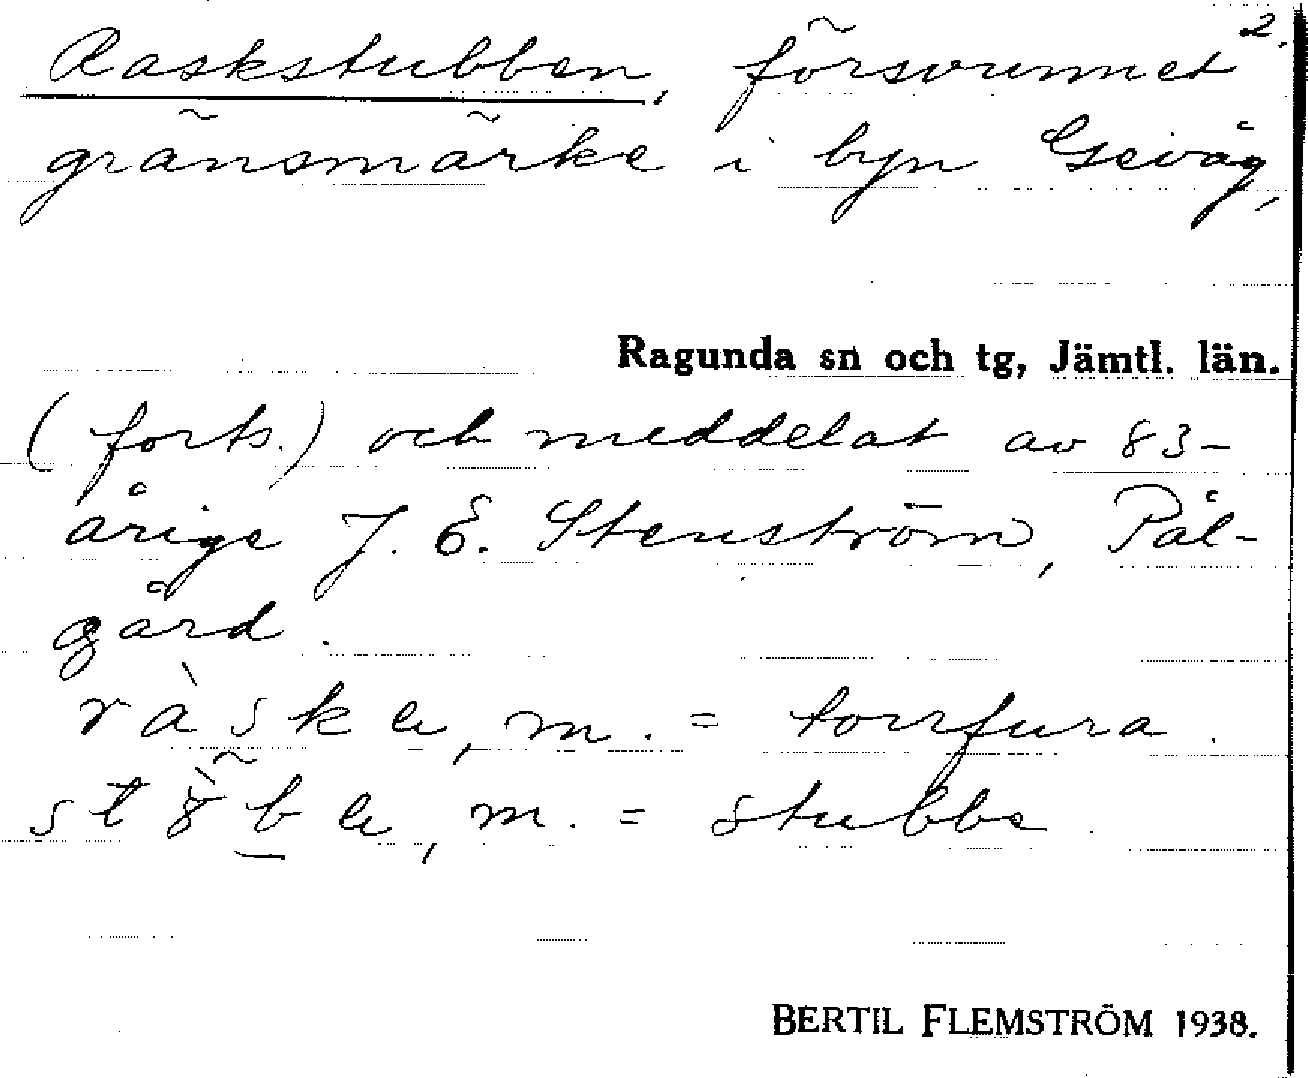 2.
Raskstubben, försvunnet
gränsmärke i byn Gevåg,
Ragunda sn och tg, Jämtl. län.
(forts.) och meddelat av 83-
årige J. E. Stenström, Pål-
gård.
m. = torrfura.
m. = stubbe.
BERTIL FLEMSTRÖM 1938.